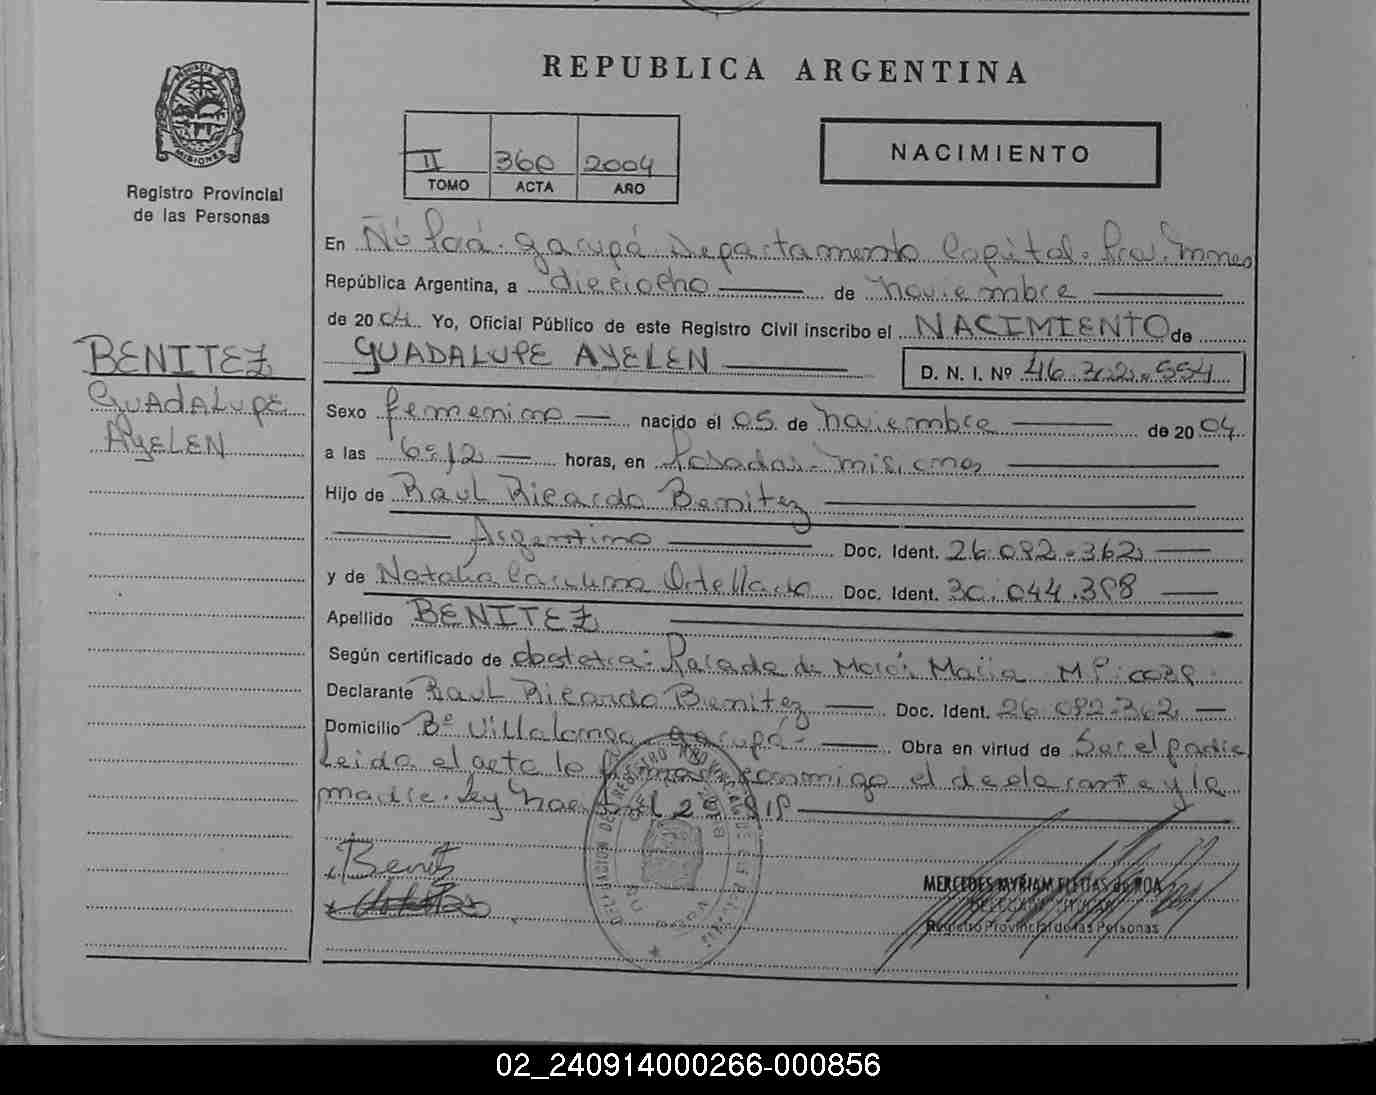 REPUBLICA ARGENTINA
PROVINCIA DE MISIONES
Registro Provincial
de las Personas
II 360 2004
TOMO ACTA AÑO
NACIMIENTO
En Ñú Porá - Garupá Departamento Capital - Prov. Mnes
República Argentina, a dieciocho de noviembre
de 2004. Yo, Oficial Público de este Registro Civil inscribo el NACIMIENTO de
GUADALUPE AYELEN D. N. I. Nº 46.322.554
BENITEZ
GUADALUPE
AYELEN
Sexo femenino nacido el 05 de noviembre de 2004
a las horas, en Posadas - Misiones
Hijo de Raul Ricardo Benitez
Argentino Doc. Ident. 26.082.362
y de Natalia Ortellado Doc. Ident. 30.044.398
Apellido BENITEZ
Según certificado de obstetra: de María M.P.
Declarante Raul Ricardo Benitez Doc. Ident. 26.082.362
Domicilio Bº Villalonga - Garupá - Obra en virtud de Ser el padre
Leida el acta la firman conmigo el declarante y la
madre. Ley Nacional 25.818
Benitez
MERCEDES MYRIAM FLEITAS de ROA
DELEGADA TITULAR
Registro Provincial de las Personas
02_240914000266-000856